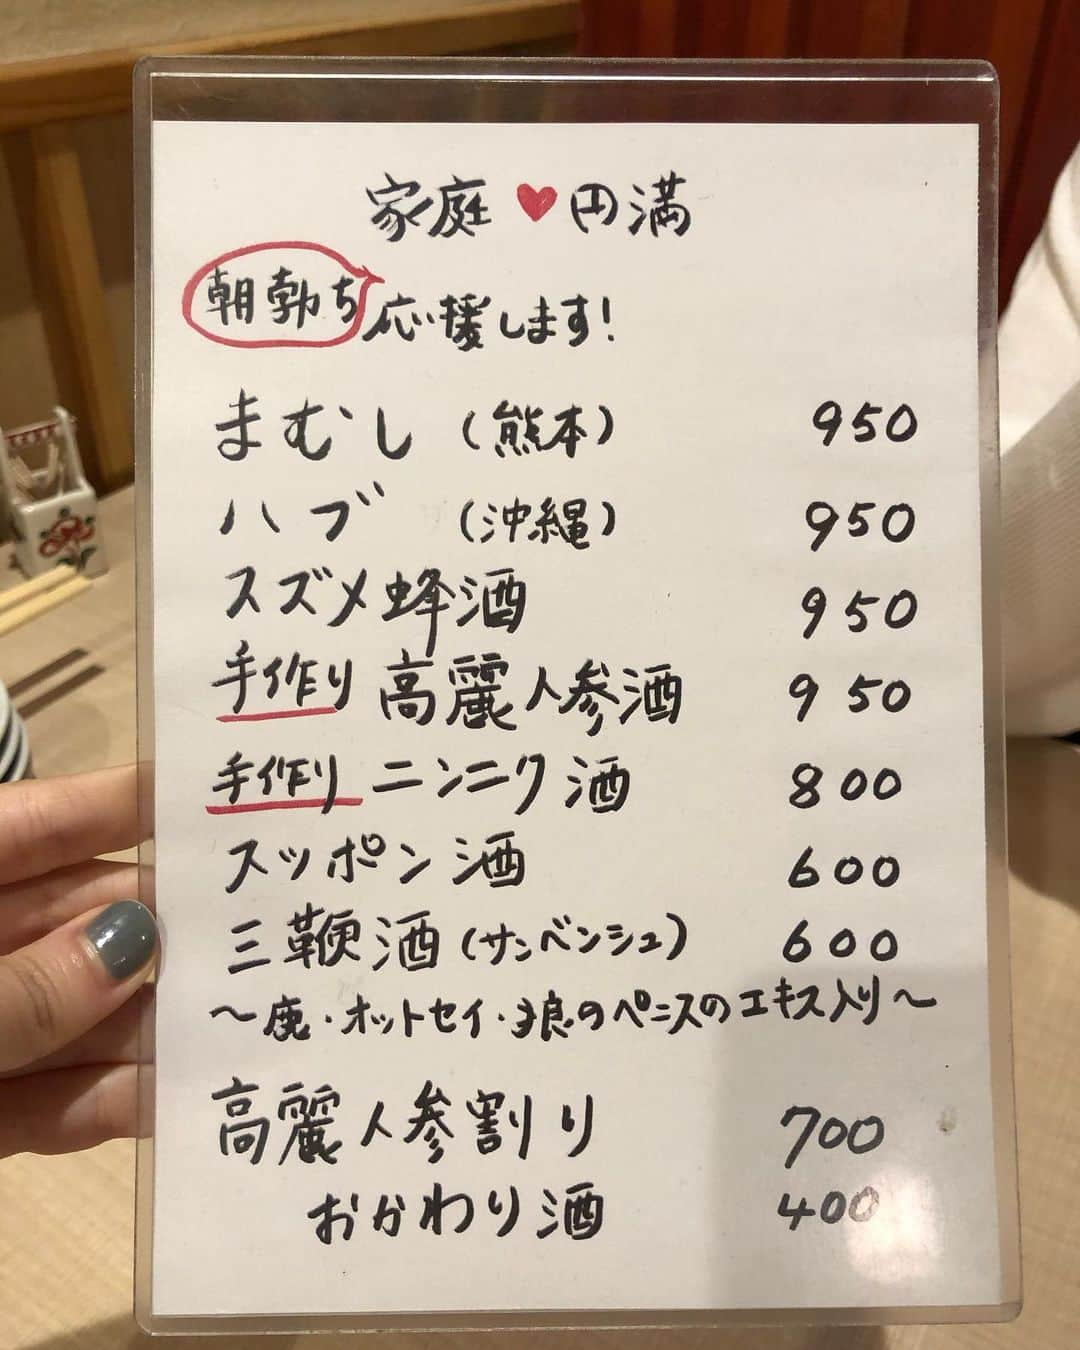 家庭♥円満
朝勃ち応援します!
まむし(熊本) 950
ハブ (沖縄) 950
スズメ蜂酒 950
手作り高麗人参酒 950
手作りニンニク酒 800
スッポン酒 600
三鞭酒(サンベンシュ) 600
〜鹿・オットセイ・狼のペニスのエキス入り〜
高麗人参割り 700
おかわり酒 400